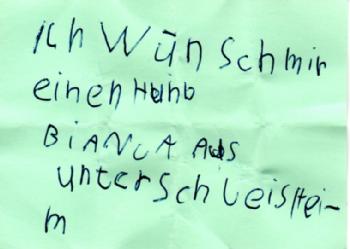 Ich WünSchmir
einen Hund
BiANCA AUS
unterSchleisHei-
m